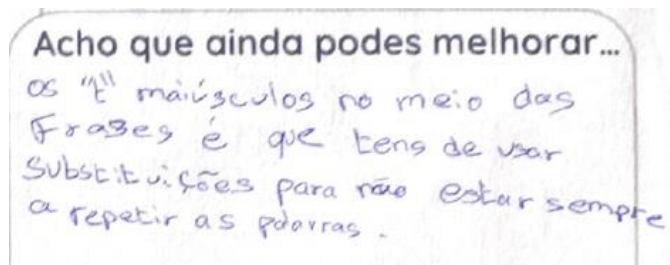 Acho que ainda podes melhorar...
os "t" maiúsculos no meio das
Frases é que tens de usar
Substituições para não estar sempre
a repetir as palavras.